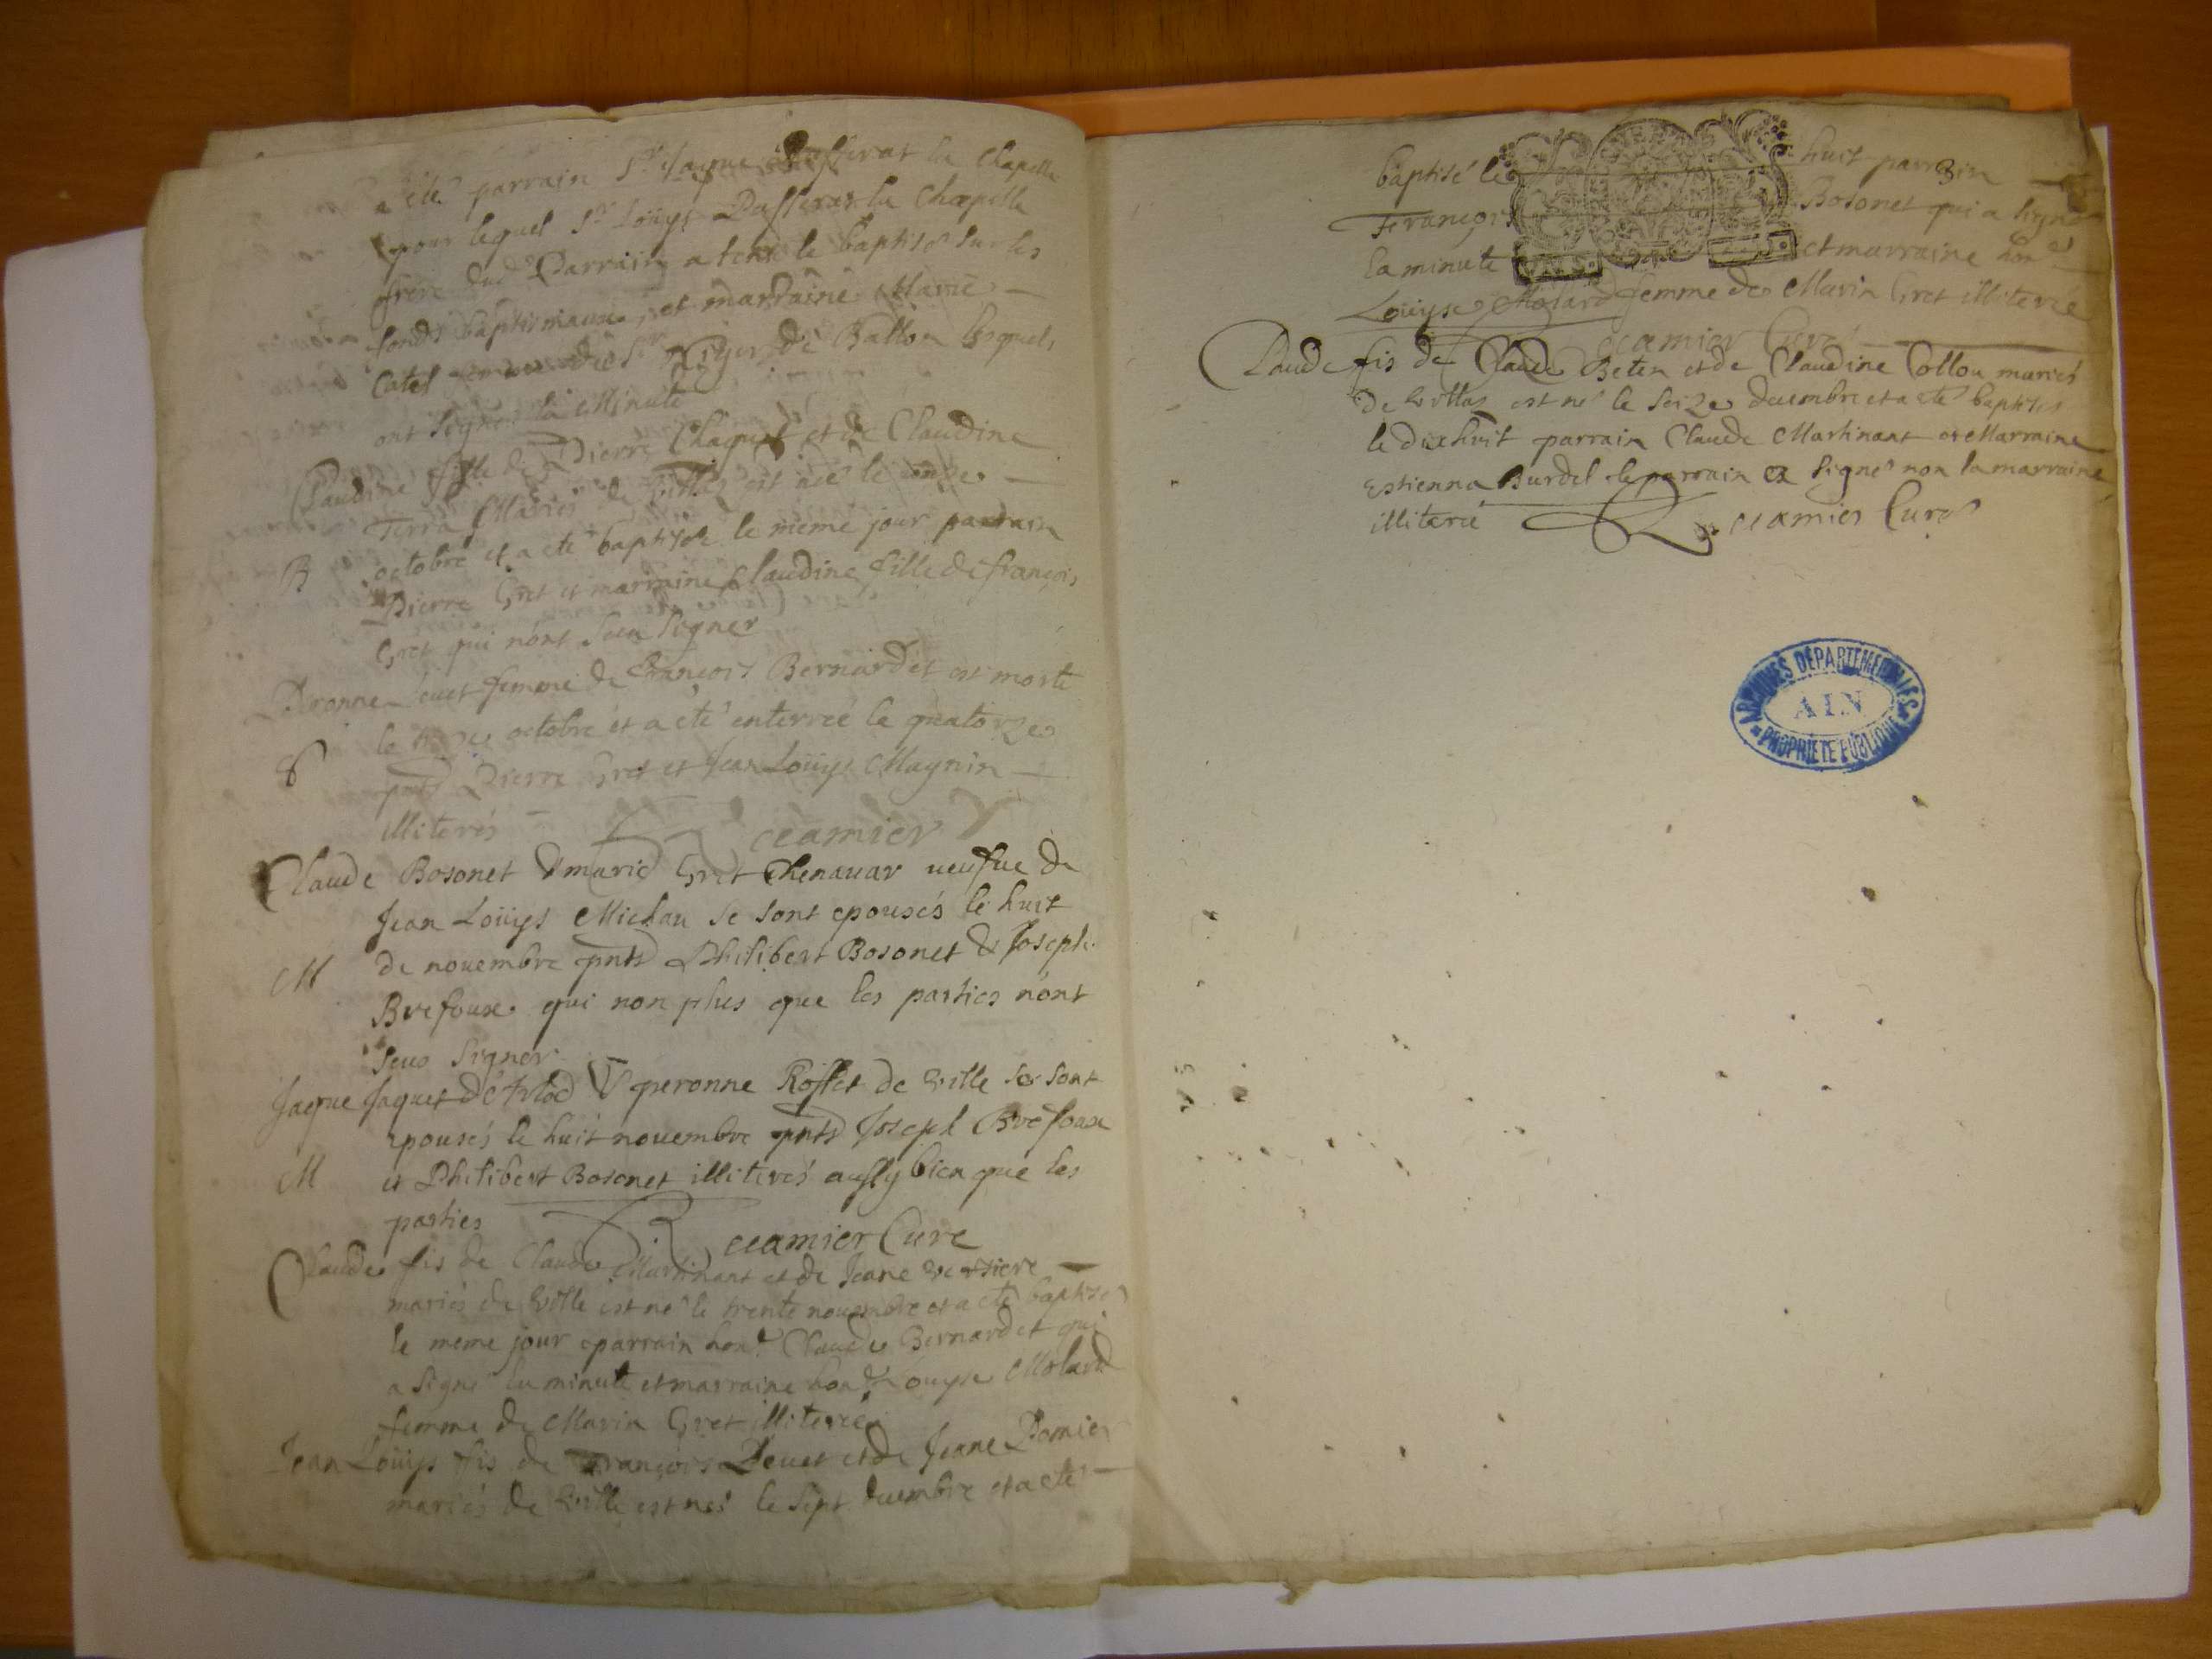 a été parrain Sr Jaque Dufferat la Chapelle
pour lequel Sr Loüys Dufferat la Chapelle
frere dud Parrain a tenu le baptisé sur les
fonds baptismaux et marraine Marie
Catel femme de Sr de Ballon lesquels
ont signé la Minute
Claudine fille de Pierre Chaquet et de Claudine
Terra Mariés de est née le onze
B octobre et a eté baptisée le meme jour parrain
Pierre Gret et marraine Claudine fille de françois
Gret qui n'ont seu signer
Peronne Jeuet femme de François Bernardet est morte
le octobre et a eté enterreé le quatorze
pnts Pierre Gret et Jean Loüys Magnin
illiterés Reamier
Claude Bosonet & marie Gret Chenavar veufue de
Jean Loüys Michau se sont epousés le huit
M de nouembre pnts Philibert Bosonet & Joseph
Brefoux qui non plus que les parties n'ont
seus signer
Jaque Jaquet d'Arlod & peronne Roffet de ville se sont
epousés le huit nouembre pnts Joseph Brefoux
M et Philibert Bosonet illiterés aussy bien que les
parties Reamier Cure
Claude fis de Claude Martinant et de Jeane
mariés de ville est né le trente nouembre et a eté baptisé
le meme jour parrain hone Claude Bernardet qui
a signé la minute et marraine hone Louyse Molard
femme de Marin Gret illitereé
Jean Loüys fis de François Deuet et de Jeane Pernier
mariés de ville est né le sept decembre et a eté
baptisé le huit parrain
François Bosonet qui a signé
la minute et marraine hone
Loüyse Molard femme de Marin Gret illitereé
Reamier Curé
Claude fis de Claude Beten et de Claudine Collou mariés
de est né le seize decembre et a eté baptisé
le dixhuit parrain Claude Martinant et Marraine
Estienna Burdel le parrain a signé non la marraine
illitereé Reamier Curé
ARCHIVES DEPARTEMENTALES
AIN
PROPRIETE PUBLIQUE